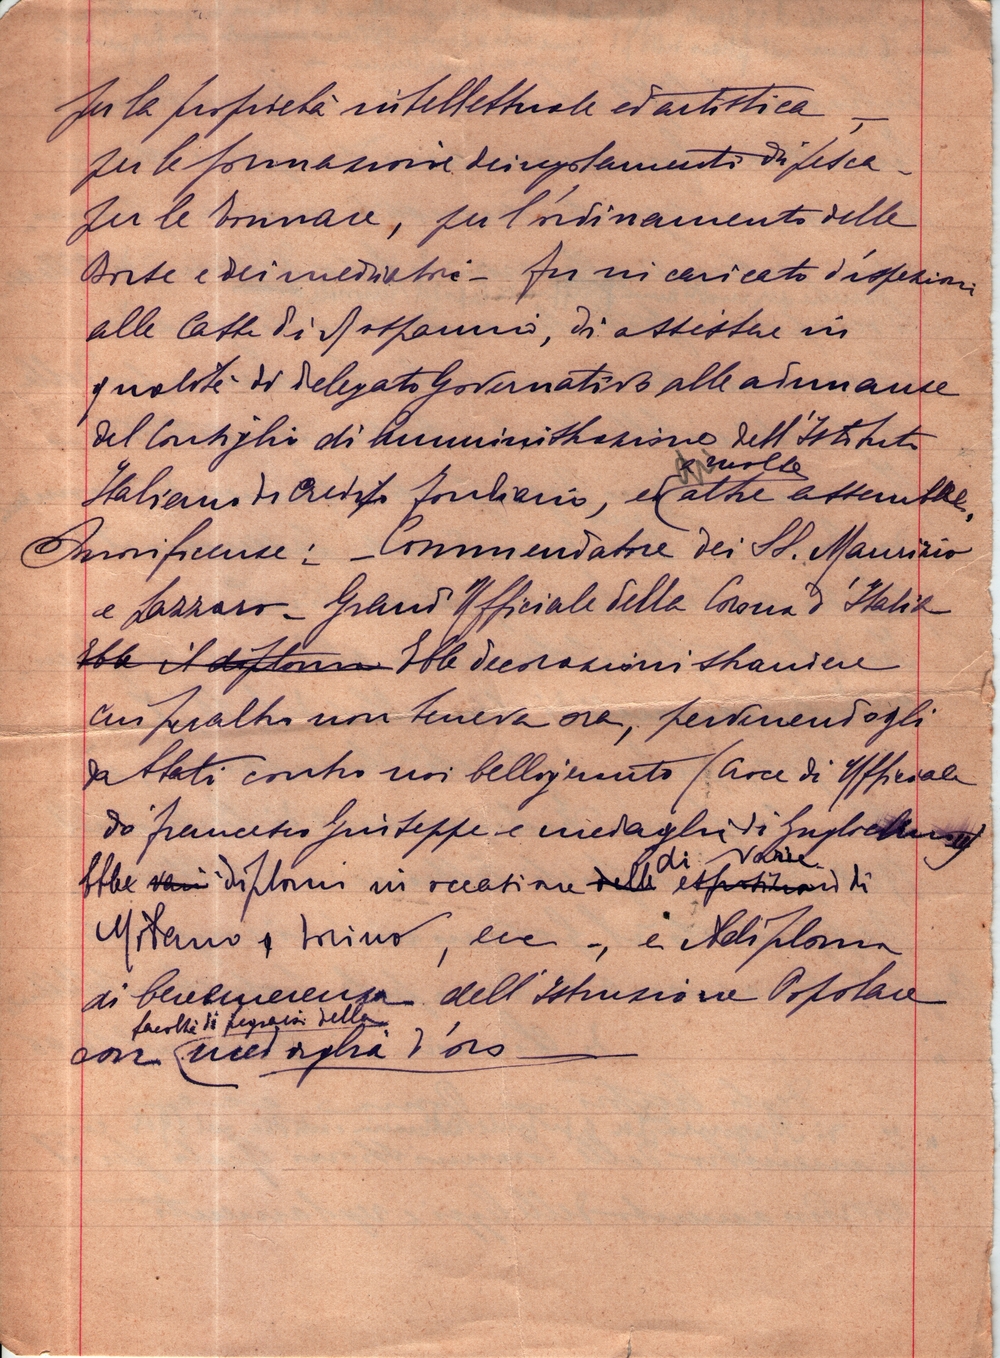 per la proprietà intellettuale ed artistica, —
per le formazione dei regolamenti di pesca -
per le tonnare, per l'ordinamento delle
Borse e dei mediatori - fu incaricato d'ispezioni
alle Casse di Risparmio, di assistere in
qualità di delegato Governativo alle adunanze
del Consiglio di Amministrazione dell'Istituto
e molte
Italiano di Credito Fondiario, ed altre assemblee.
Onorificenze: - Commendatore dei SS. Maurizio
e Lazzaro - Grand'Ufficiale della Corona d'Italia
Ebbe il diploma Ebbe decorazioni straniere
cui peraltro non teneva ora, pervenendogli
da Stati contro noi belligeranti (Croce di Ufficiale
di Francesco Giuseppe e medaglia di Guglielmo
di varie
Ebbe vari diplomi in occasione delle esposizioni di
Milano, Torino, ecc -, e il diploma
di benemerenza dell'Istruzione Popolare
facoltà di fregiarsi della
con medaglia d'oro